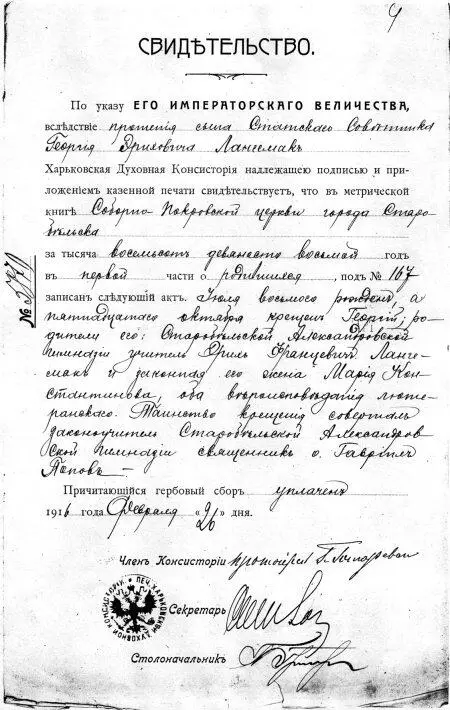 СВИДѢТЕЛЬСТВО.
По указу ЕГО ИМПЕРАТОРСКАГО ВЕЛИЧЕСТВА,
вслѣдствіе прошенія сына Статскаго Совѣтника
Георгія Эриховича Лангемакъ
Харьковская Духовная Консисторія надлежащею подписью и при-
ложеніемъ казенной печати свидѣтельствуетъ, что въ метрической
книгѣ Соборно-Покровской церкви города Старо-
бѣльска
за тысяча восемьсотъ девяносто восьмой годъ
въ первой части о родившихся, подъ № 167
записанъ слѣдующій актъ. Іюля восьмого рожденъ, а
пятнадцатаго октября крещенъ Георгій; ро-
дители его: Старобѣльской Александровской
гимназіи учитель Эрихъ Францевичъ Ланге-
макъ и законная его жена Марія Кон-
стантинова, оба вѣроисповѣданія люте-
ранскаго. Таинство крещенія совершалъ
законоучитель Старобѣльской Александров-
ской гимназіи священникъ о. Гавріилъ
Поповъ —
Причитающійся гербовый сборъ уплаченъ
1916 года Февраля «26» дня.
Членъ Консисторіи протоіерей
Секретарь
Столоначальникъ
ПЕЧ. ХАРЬКОВСКОЙ ДУХОВНОЙ КОНСИСТОРІИ